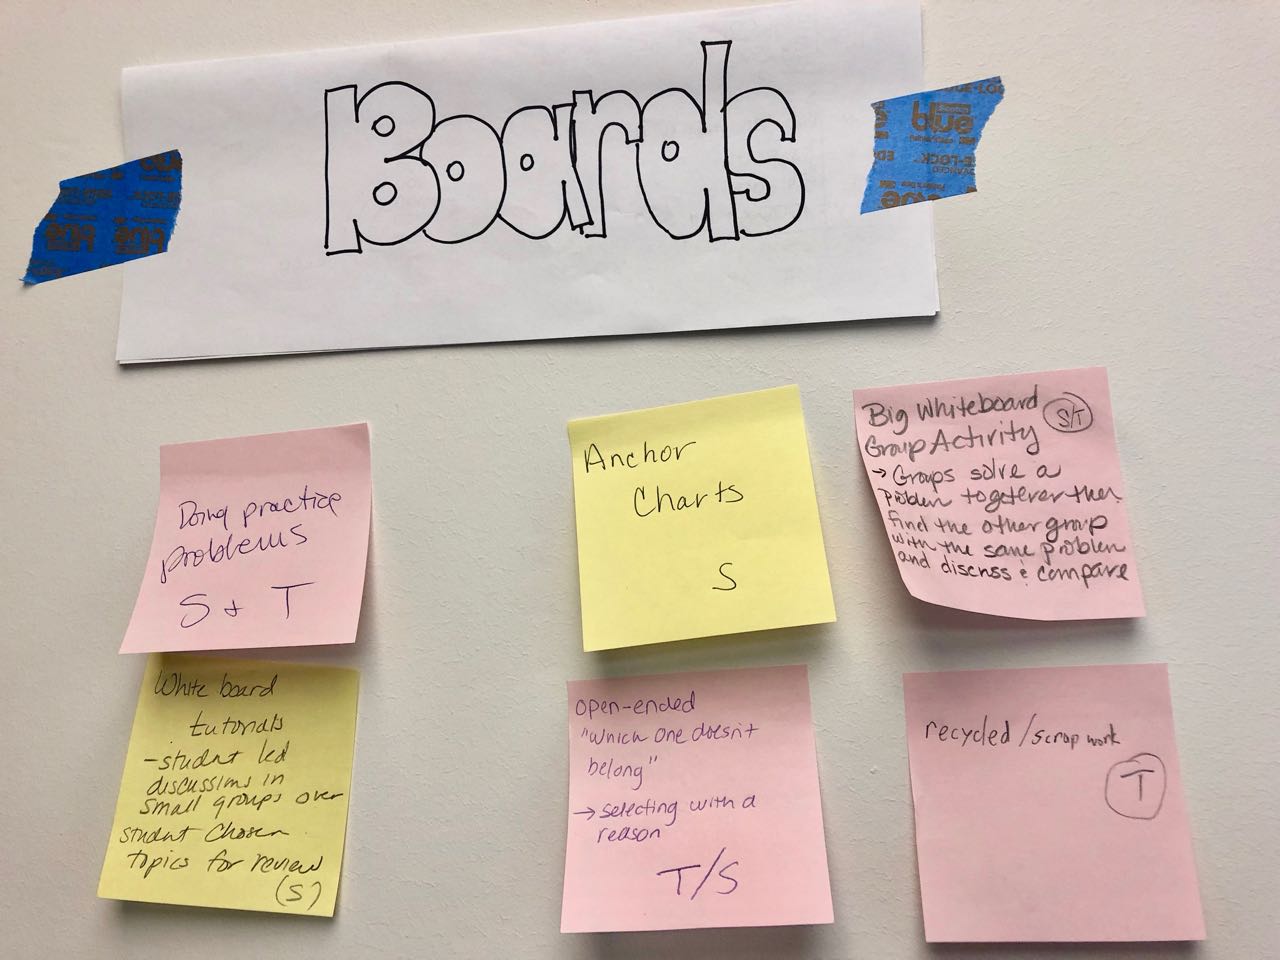 Boards
Doing practice
problems
S + T
Anchor
Charts
S
Big Whiteboard
Group Activity
S/T
→ Groups solve a
problem together then
find the other group
with the same problem
and discuss & compare
White board
tutorials
-student led
discussions in
small groups over
student chosen
topics for review
(S)
open-ended
"which one doesn't
belong"
→ selecting with a
reason
T/S
recycled/scrap work
T
blue